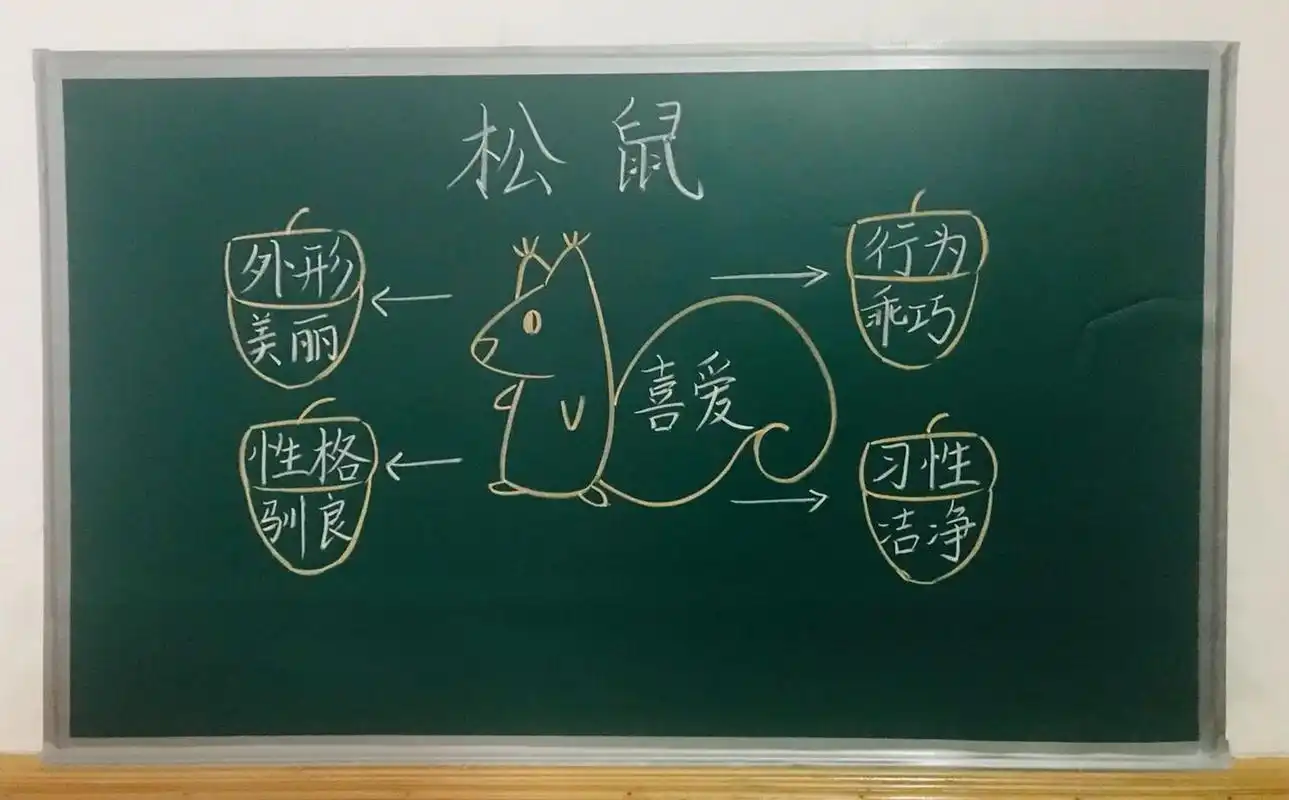 松鼠
外形
美丽
性格
驯良
喜爱
行为
乖巧
习性
洁净